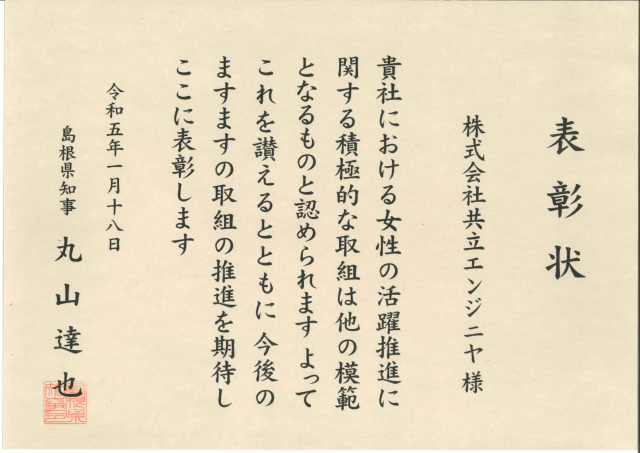 表彰状
株式会社共立エンジニヤ 様
貴社における女性の活躍推進に
関する積極的な取組は他の模範
となるものと認められます よって
これを讃えるとともに 今後の
ますますの取組の推進を期待し
ここに表彰します
令和五年一月十八日
島根県知事 丸山達也